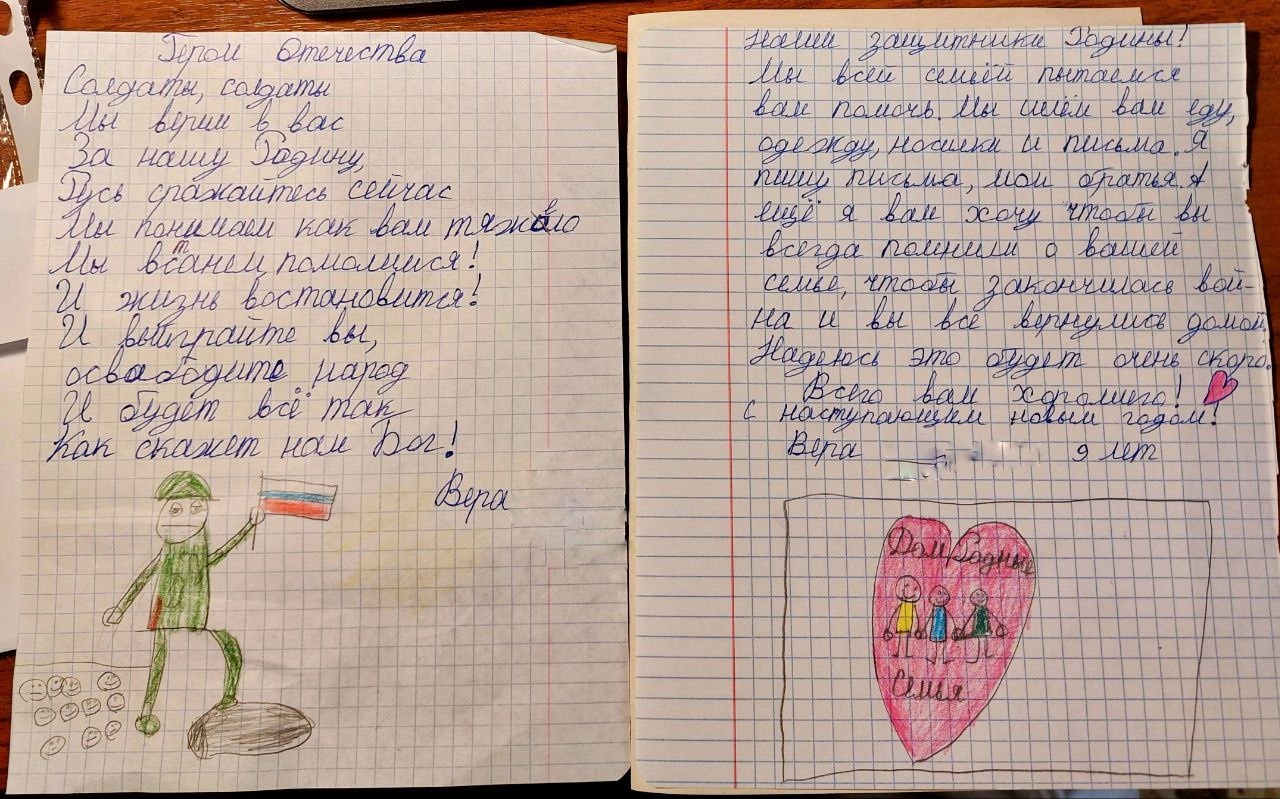 Герои Отечества
Солдаты, солдаты
Мы верим в вас
За нашу Родину,
Русь сражайтесь сейчас
Мы понимаем как вам тяжело
Мы встанем помолимся!
И жизнь востановится!
И выиграйте вы,
освабодите народ
И будет всё так
Как скажет нам Бог!
Вера
Наши защитники Родины!
Мы всей семьёй пытаемся
вам помочь. Мы шлём вам еду,
одежду, носилки и письма. Я
пишу письма, мои братья. А
ещё я вам хочу чтобы вы
всегда помнили о вашей
семье, чтобы закончилась вой-
на и вы все вернулись домой.
Надеюсь это будет очень скоро.
Всего вам хорошего!
С наступающим новым годом!
Вера 9 лет
Дом Родные
Семья